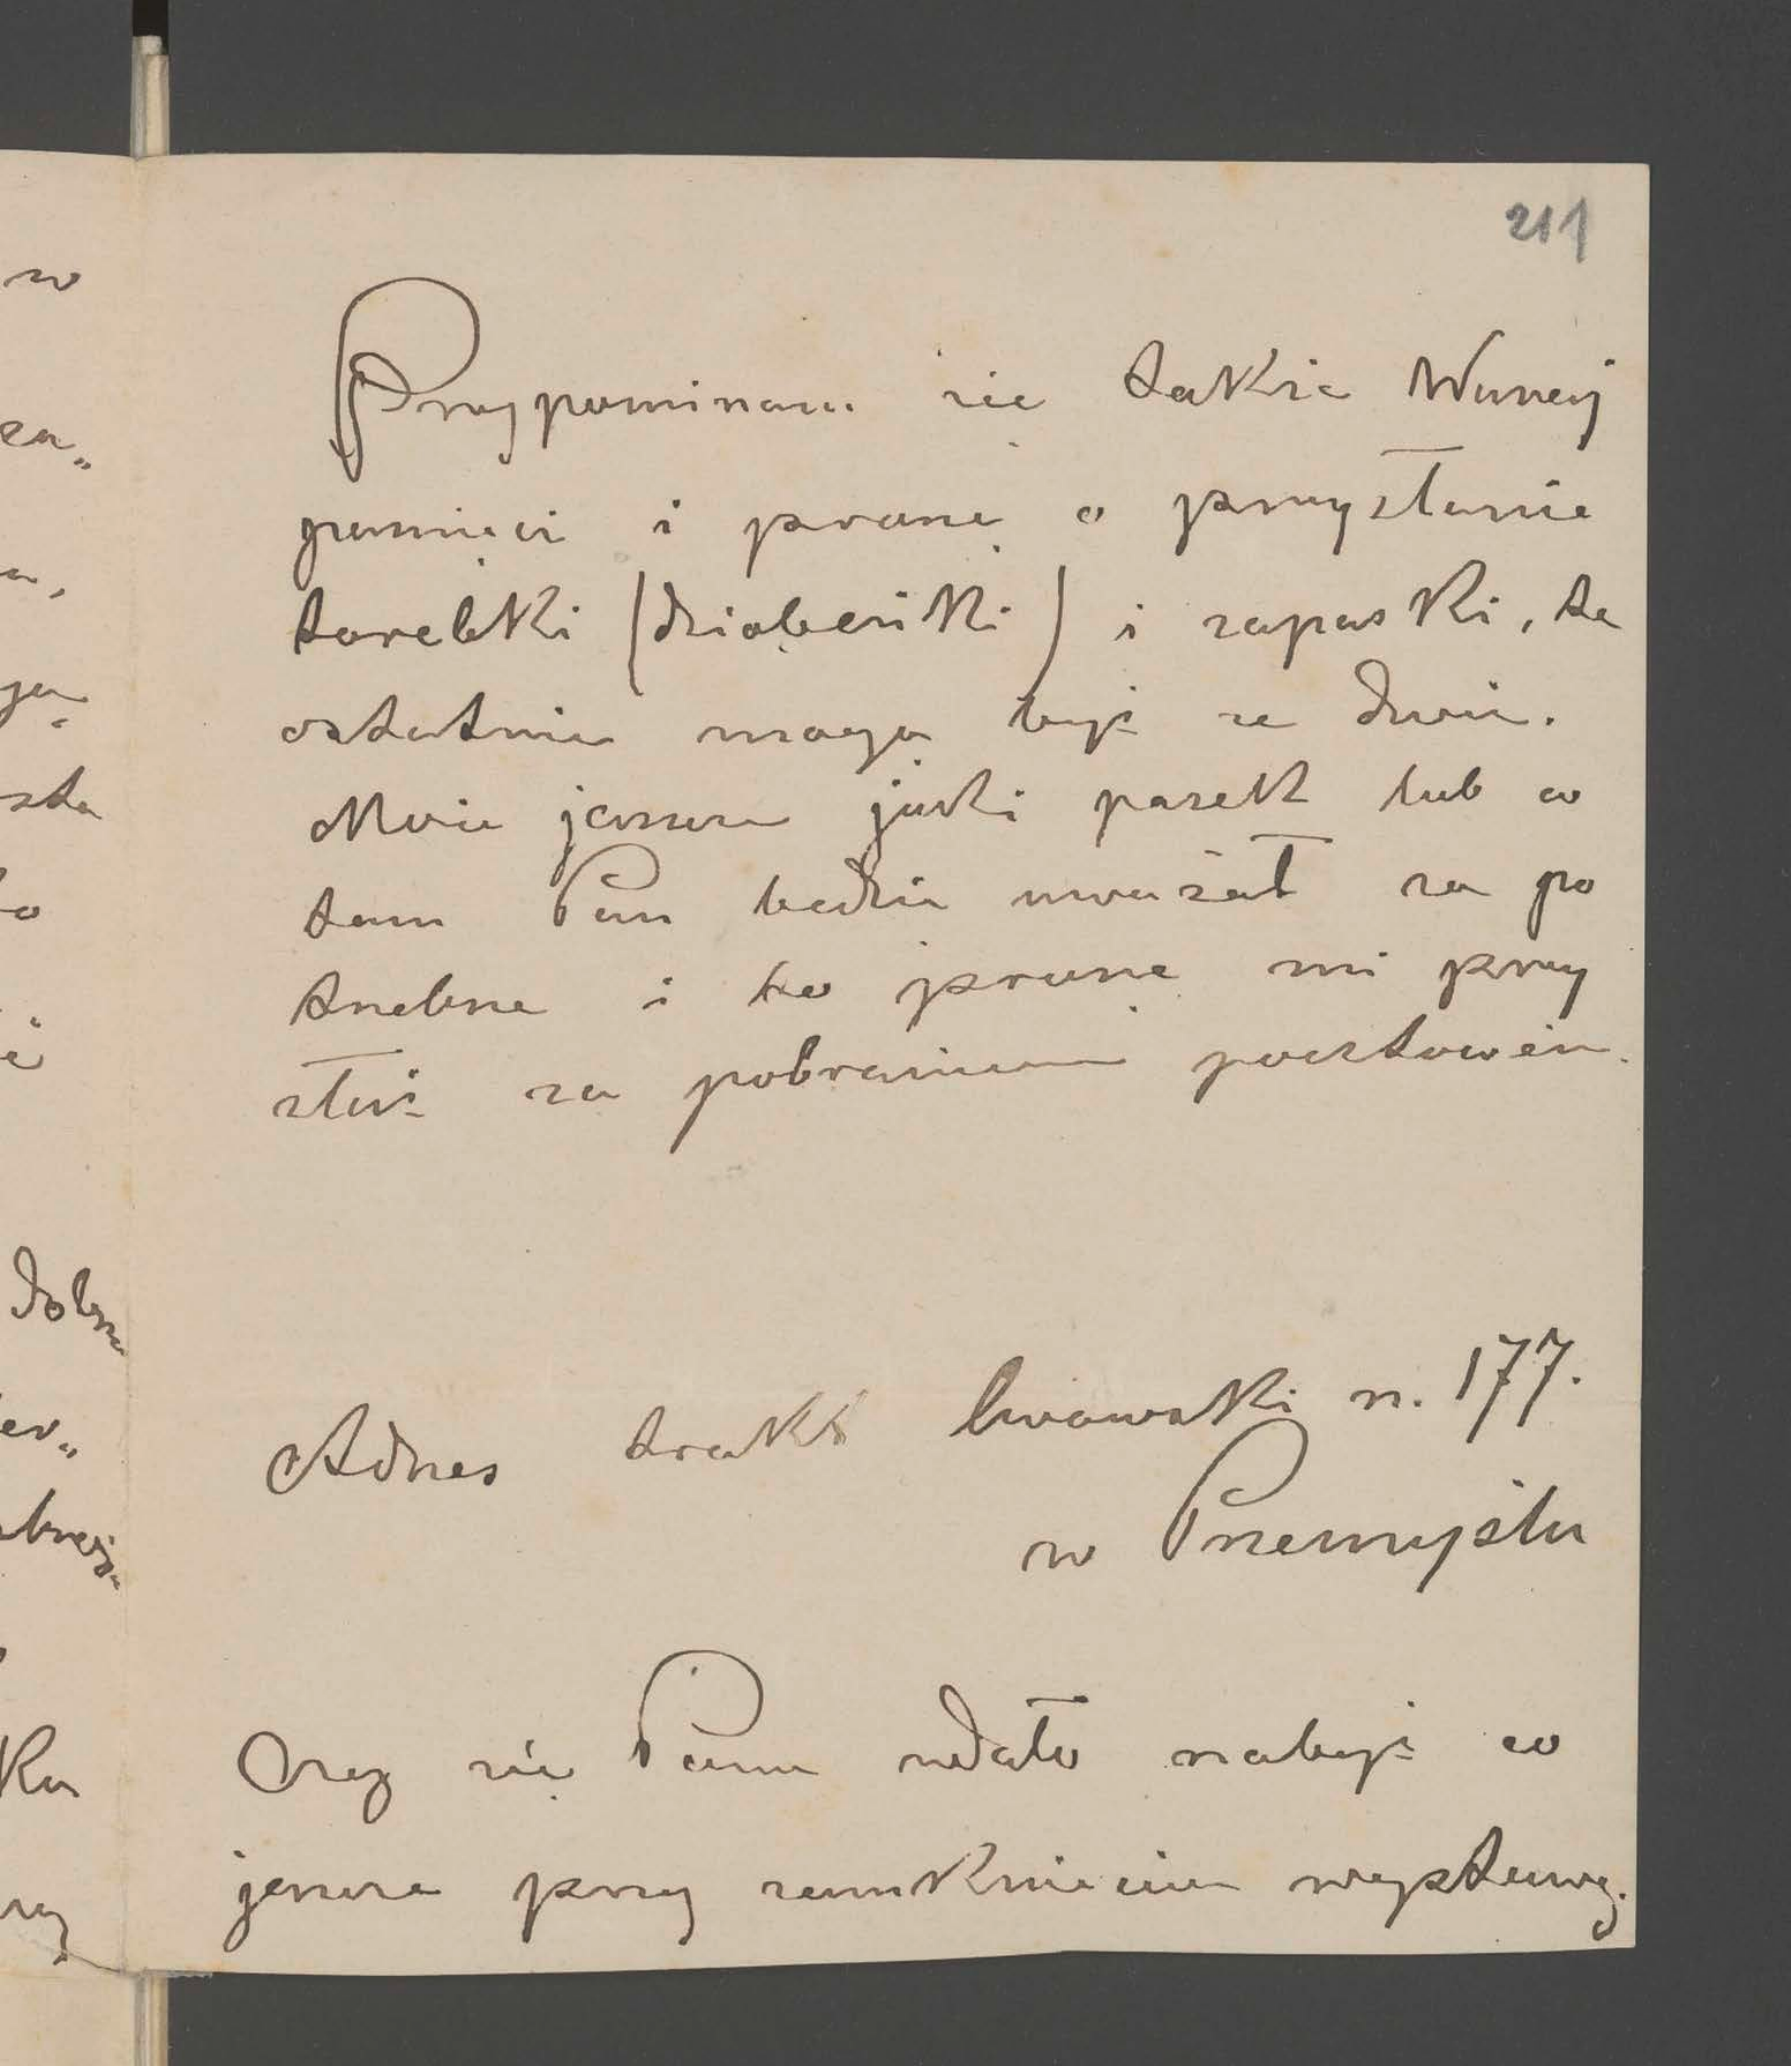 211
Przypominam się także Waszej
pamięci i proszę o przysłanie
torebki (dziobeńki) i zapaski, te
ostatnie mogą być ze dwie.
Może jeszcze jaki pasek lub co
tam Pan będzie uważał za po
trzebne i to proszę mi przy
słać za pobraniem pocztowem.
Adres trakt lwowski n. 177.
w Przemyślu
Czy się Panu udało nabyć co
jeszcze przy zamknięciu wystawy.